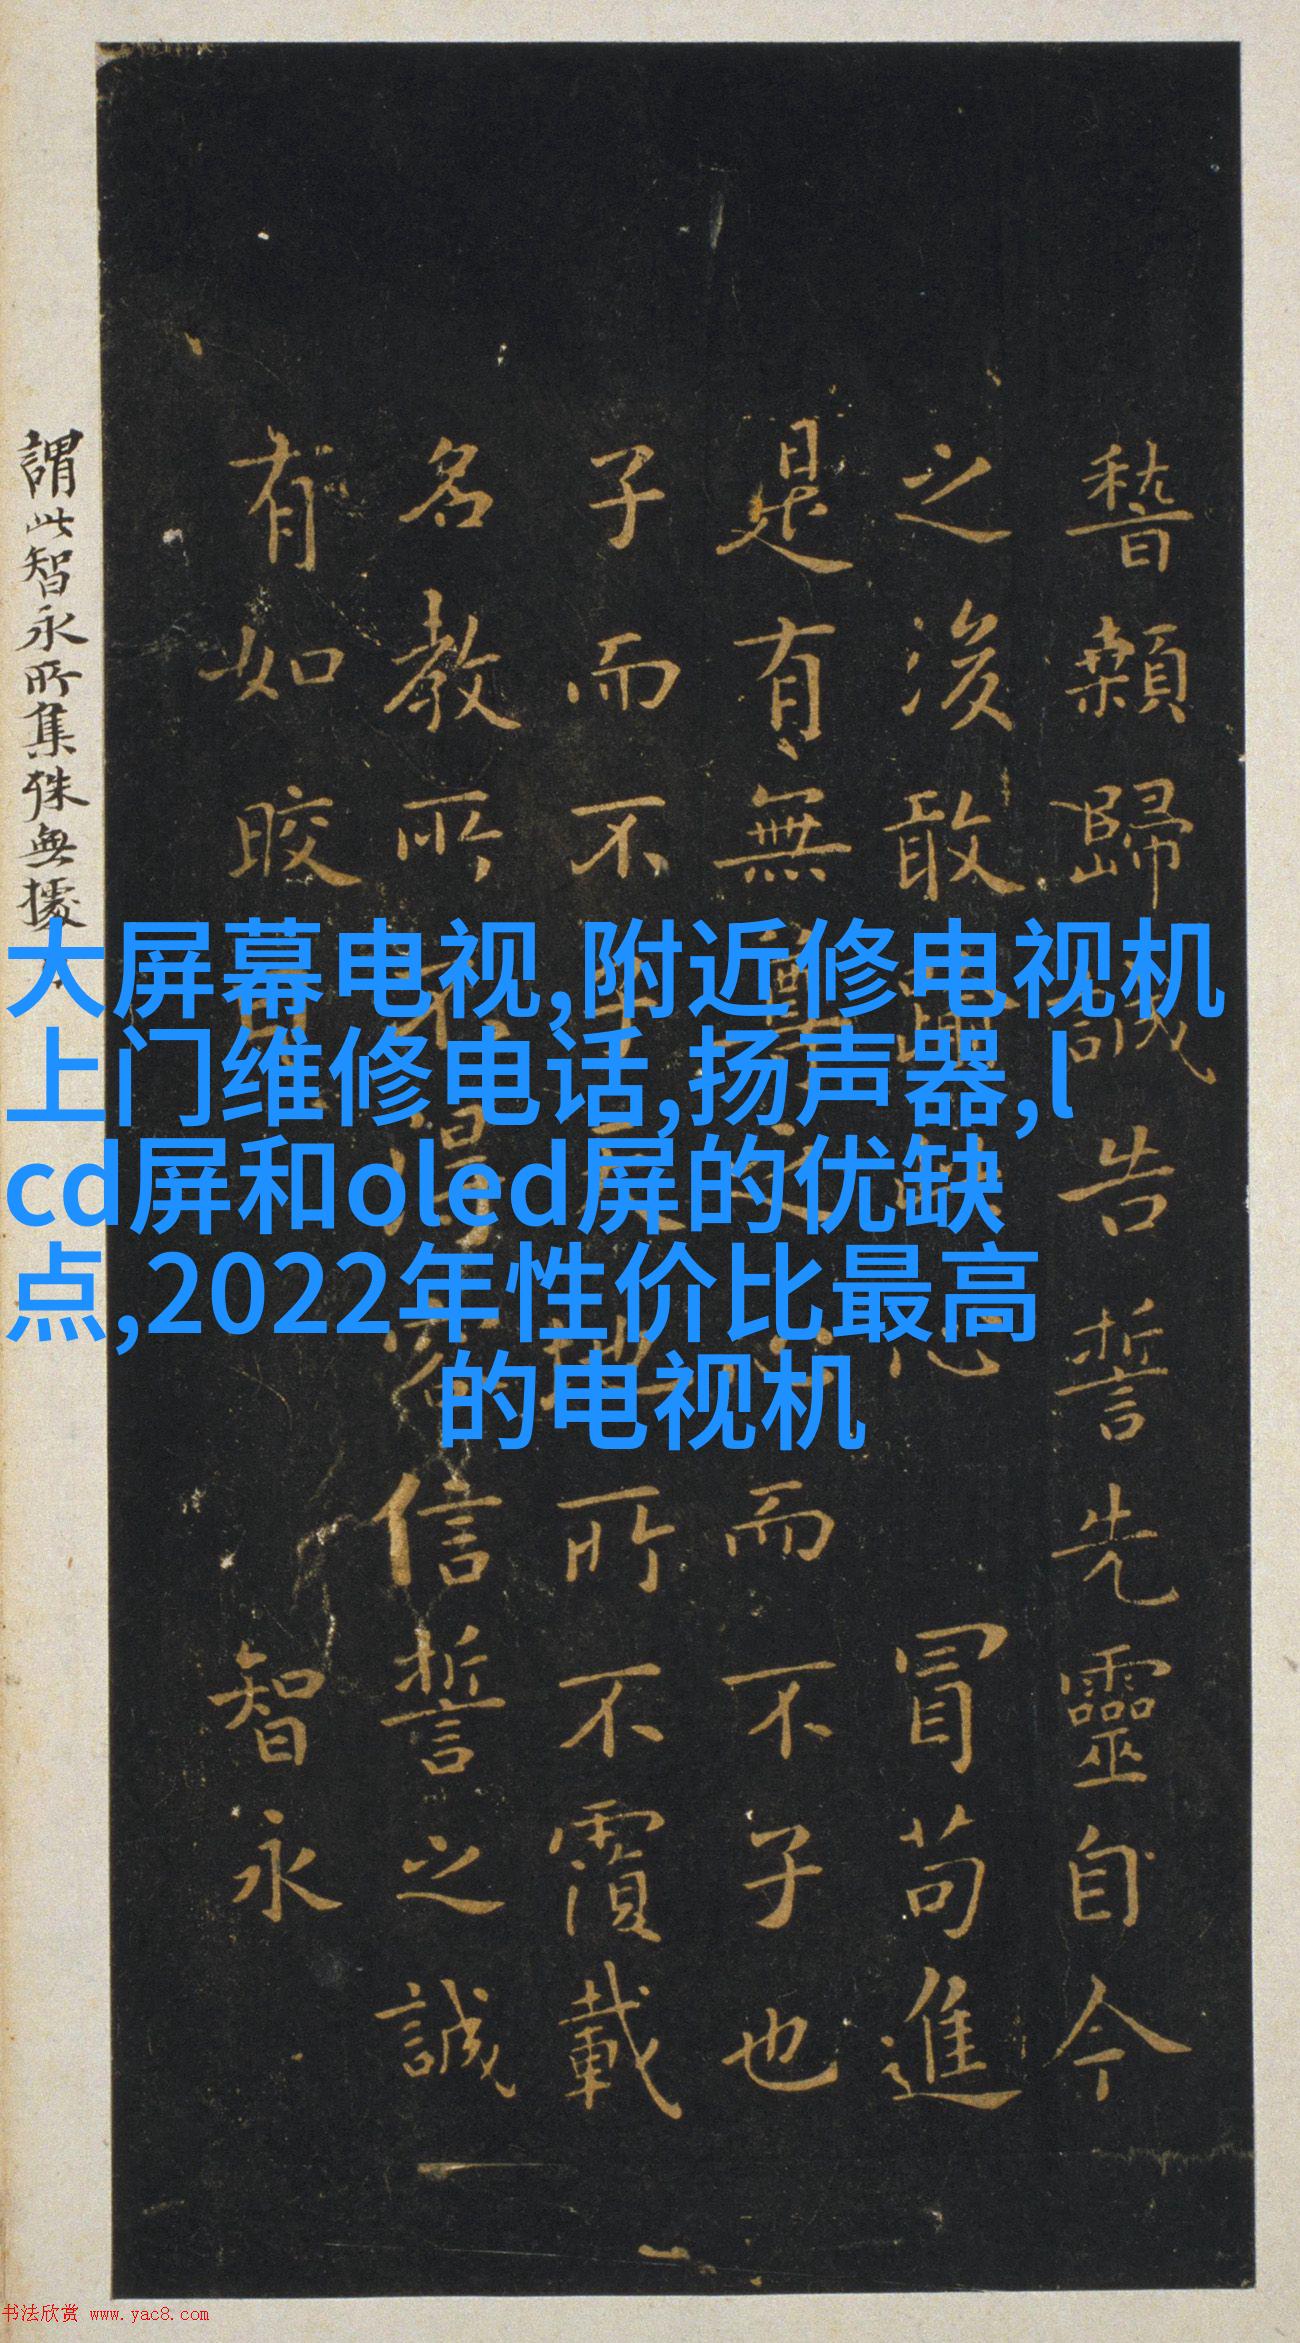 稽顙歸誠告誓先靈自今
之後敢心冒苟進
是有無尊之心而不子也
子而不子天地所不覆載
名教所不得容信誓之誠
有如皎日
智永
謂此智永所集殊無據
大屏幕电视,附近修电视机
上门维修电话,扬声器,l
cd屏和oled屏的优缺
点,2022年性价比最高
的电视机
书法欣赏 www.yac8.com